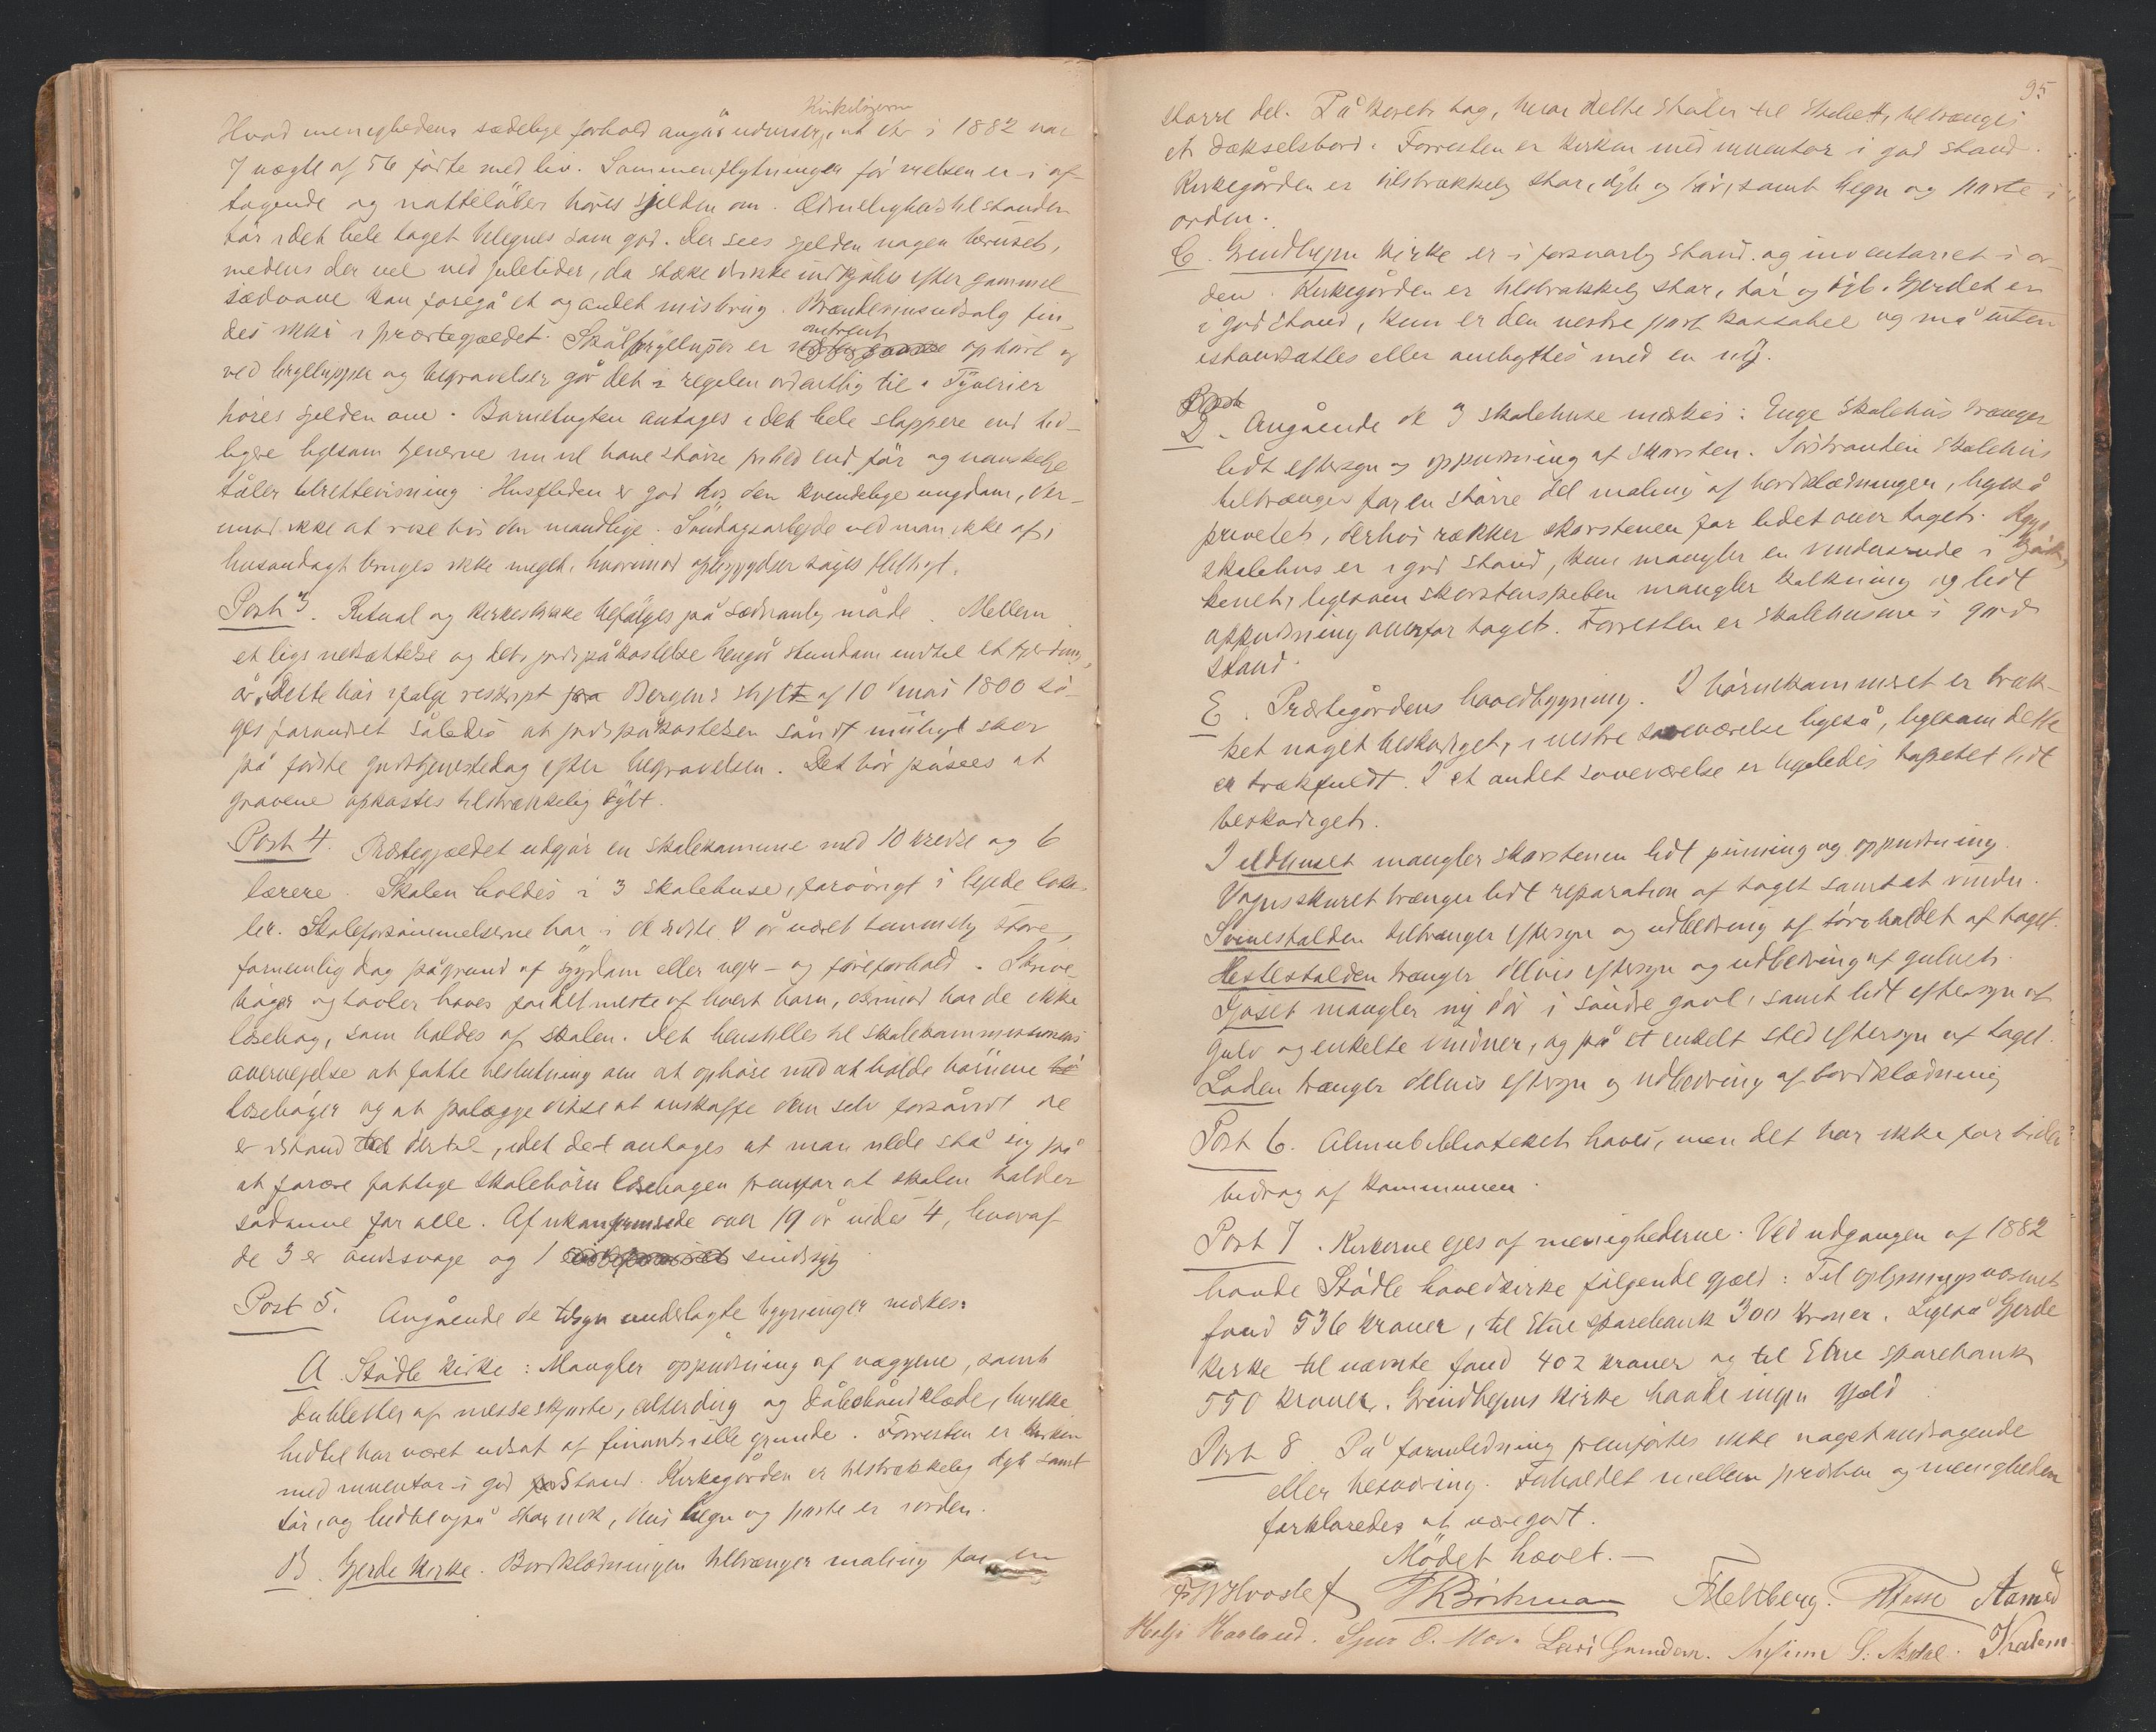 Kirkebøgerne
Hvad menighedens sædelige forhold angår udviser, at der i 1882 var
7 uægte af 56 fødte med liv. Sammenflytningen før vielsen er i af-
tagende og natteløberi høres sjelden om. Ædruelighedstilstanden
bør i det hele taget betegnes som god. Der sees sjelden nogen beruset,
medens der vel ved juletider, da stærke drikke indkjøbes efter gammel
sædvane kan foregå et og andet misbrug. Brændevinsudsalg fin-
des ikke i præstegjældet. Skålbryllupper er omtrent ophørt og
ved bryllupper og begravelser går det i regelen ordentlig til. Tyverier
høres sjelden om. Barnetugten antages i det hele slappere end tid-
ligere ligesom tjenerne nu vil have større frihed end før og vanskelig
tåler tilrettevisning. Husfliden er god hos den kvindelige ungdom, der-
imod ikke at rose hos den mandlige. Søndagsarbejde ved man ikke af,
husandagt bruges ikke meget, hvorimod opbyggelser søges flittigt.
Post 3. Ritual og kirkeskikke befølges på sædvanlig måde. Mellem
et ligs nedsættelse og dets jordspåkastelse hengår stundom indtil et fjerding-
år. Dette bør ifølge reskript fra Bergens stift af 10 mai 1800 sø-
ges forandret således at jordspåkastelsen såvidt muligt sker
på første gudstjenestedag efter begravelsen. Det bør påsees at
gravene opkastes tilstrækkelig dybt.
Post 4. Præstegjældet udgjør en skolekommune med 10 kredse og 6
lærere. Skolen holdes i 3 skolehuse, forøvrigt i lejede loka-
ler. Skoleforsømmelserne har i de sidste år været temmelig store,
fornemlig dog på grund af sygdom eller vejr- og føreforhold. Skrive-
bøger og tavler haves for det meste af hvert barn, derimod har de ikke
læsebog, som holdes af skolen. Det henstilles til skolekommissionens
overvejelse at fatte beslutning om at ophøre med at holde børnene
læsebøger og at pålægge disse at anskaffe dem selv forsåvidt de
er istand dertil, idet det antages at man vilde stå sig på
at forære fattige skolebørn læsebogen fremfor at skolen holder
sådanne for alle. Af ukonfirmerede over 19 år vides 4, hvoraf
de 3 er åndssvage og 1 sindssyg
Post 5. Angående de tilsyn underlagte bygninger mærkes:
A Stødle kirke: Mangler oppudsning af væggene, samt
dubletter af messeskjorte, alterdug og dåbshåndklæde, hvilke
hidtil har været udsat af finantsielle grunde. Forresten er kirken
med inventar i god stand. Kirkegården er tilstrækkelig dyb samt
tør, og hidtil også stor nok, dens hegn og porte er i orden.
B. Gjerde kirke. Bordklædningen tiltrænger maling for en
95
større del. På korets tag, hvor dette støder til skibet, tiltrænges
et dækselsbord. Forresten er kirken med inventar i god stand.
Kirkegården er tilstrækkelig stor, dyb og tør, samt hegn og porte i
orden.
C. Grindhejm kirke er i forsvarlig stand og inventariet i or-
den. Kirkegården er tilstrækkelig stor, tør og dyb. Gjerdet er
i god stand, kun er den vestre port kassabel og må enten
istandsættes eller ombyttes med en ny.
Post
D. Angående de 3 skolehuse mærkes: Enge skolehus trænger
lidt eftersyn og oppudsning af skorsten. Sørstranden skolehus
tiltrænger for en større del maling af bordklædningen, ligeså
privetet, derhos rækker skorstenen for lidet over taget.
skolehus er i god stand, kun mangler en vinduesrude i kjøk-
kenet, ligesom skorstenspiben mangler kalkning og lidt
oppudsning ovenfor taget. Forresten er skolehusene i god
stand.
E. Præstegårdens hovedbygning. I hjørnekammeret er træk-
ket noget beskadiget, i vestre soveværelse ligeså, ligesom dette
er trækfuldt. I et andet soveværelse er ligeledes tapetet lidt
beskadiget.
I ildhuset mangler skorstenen lidt pinning og oppudsning.
Vognskuret trænger lidt reparation af taget samt et vindu.
Svinestalden tiltrænger eftersyn og udbedring af torvholdet af taget.
Hestestalden trænger delvis eftersyn og udbedring af gulvet.
Fjøset mangler ny dør i søndre gavl, samt lidt eftersyn af
gulv og enkelte vinduer, og på et enkelt sted eftersyn af taget.
Laden trænger delvis eftersyn og udbedring af bordklædning
Post 6. Almuebibliotheket haves, men det har ikke for tiden
bidrag af kommunen.
Post 7. Kirkerne ejes af menighederne. Ved udgangen af 1882
havde Stødle hovedkirke følgende gjæld: Til oplysningsvæsenets
fond 536 kroner, til Etne sparebank 300 kroner. Ligesaa Gjerde
kirke til nævnte fond 402 kroner og til Etne sparebank
550 kroner. Grindhejms kirke havde ingen gjæld.
Post 8. På formledning fremførtes ikke noget andragende
eller besværing. Forholdet mellem præsten og menigheden
forklaredes at være godt.
Mødet hævet.—
F W Hvoslef
Helje Havland. Sjur O. Mo.